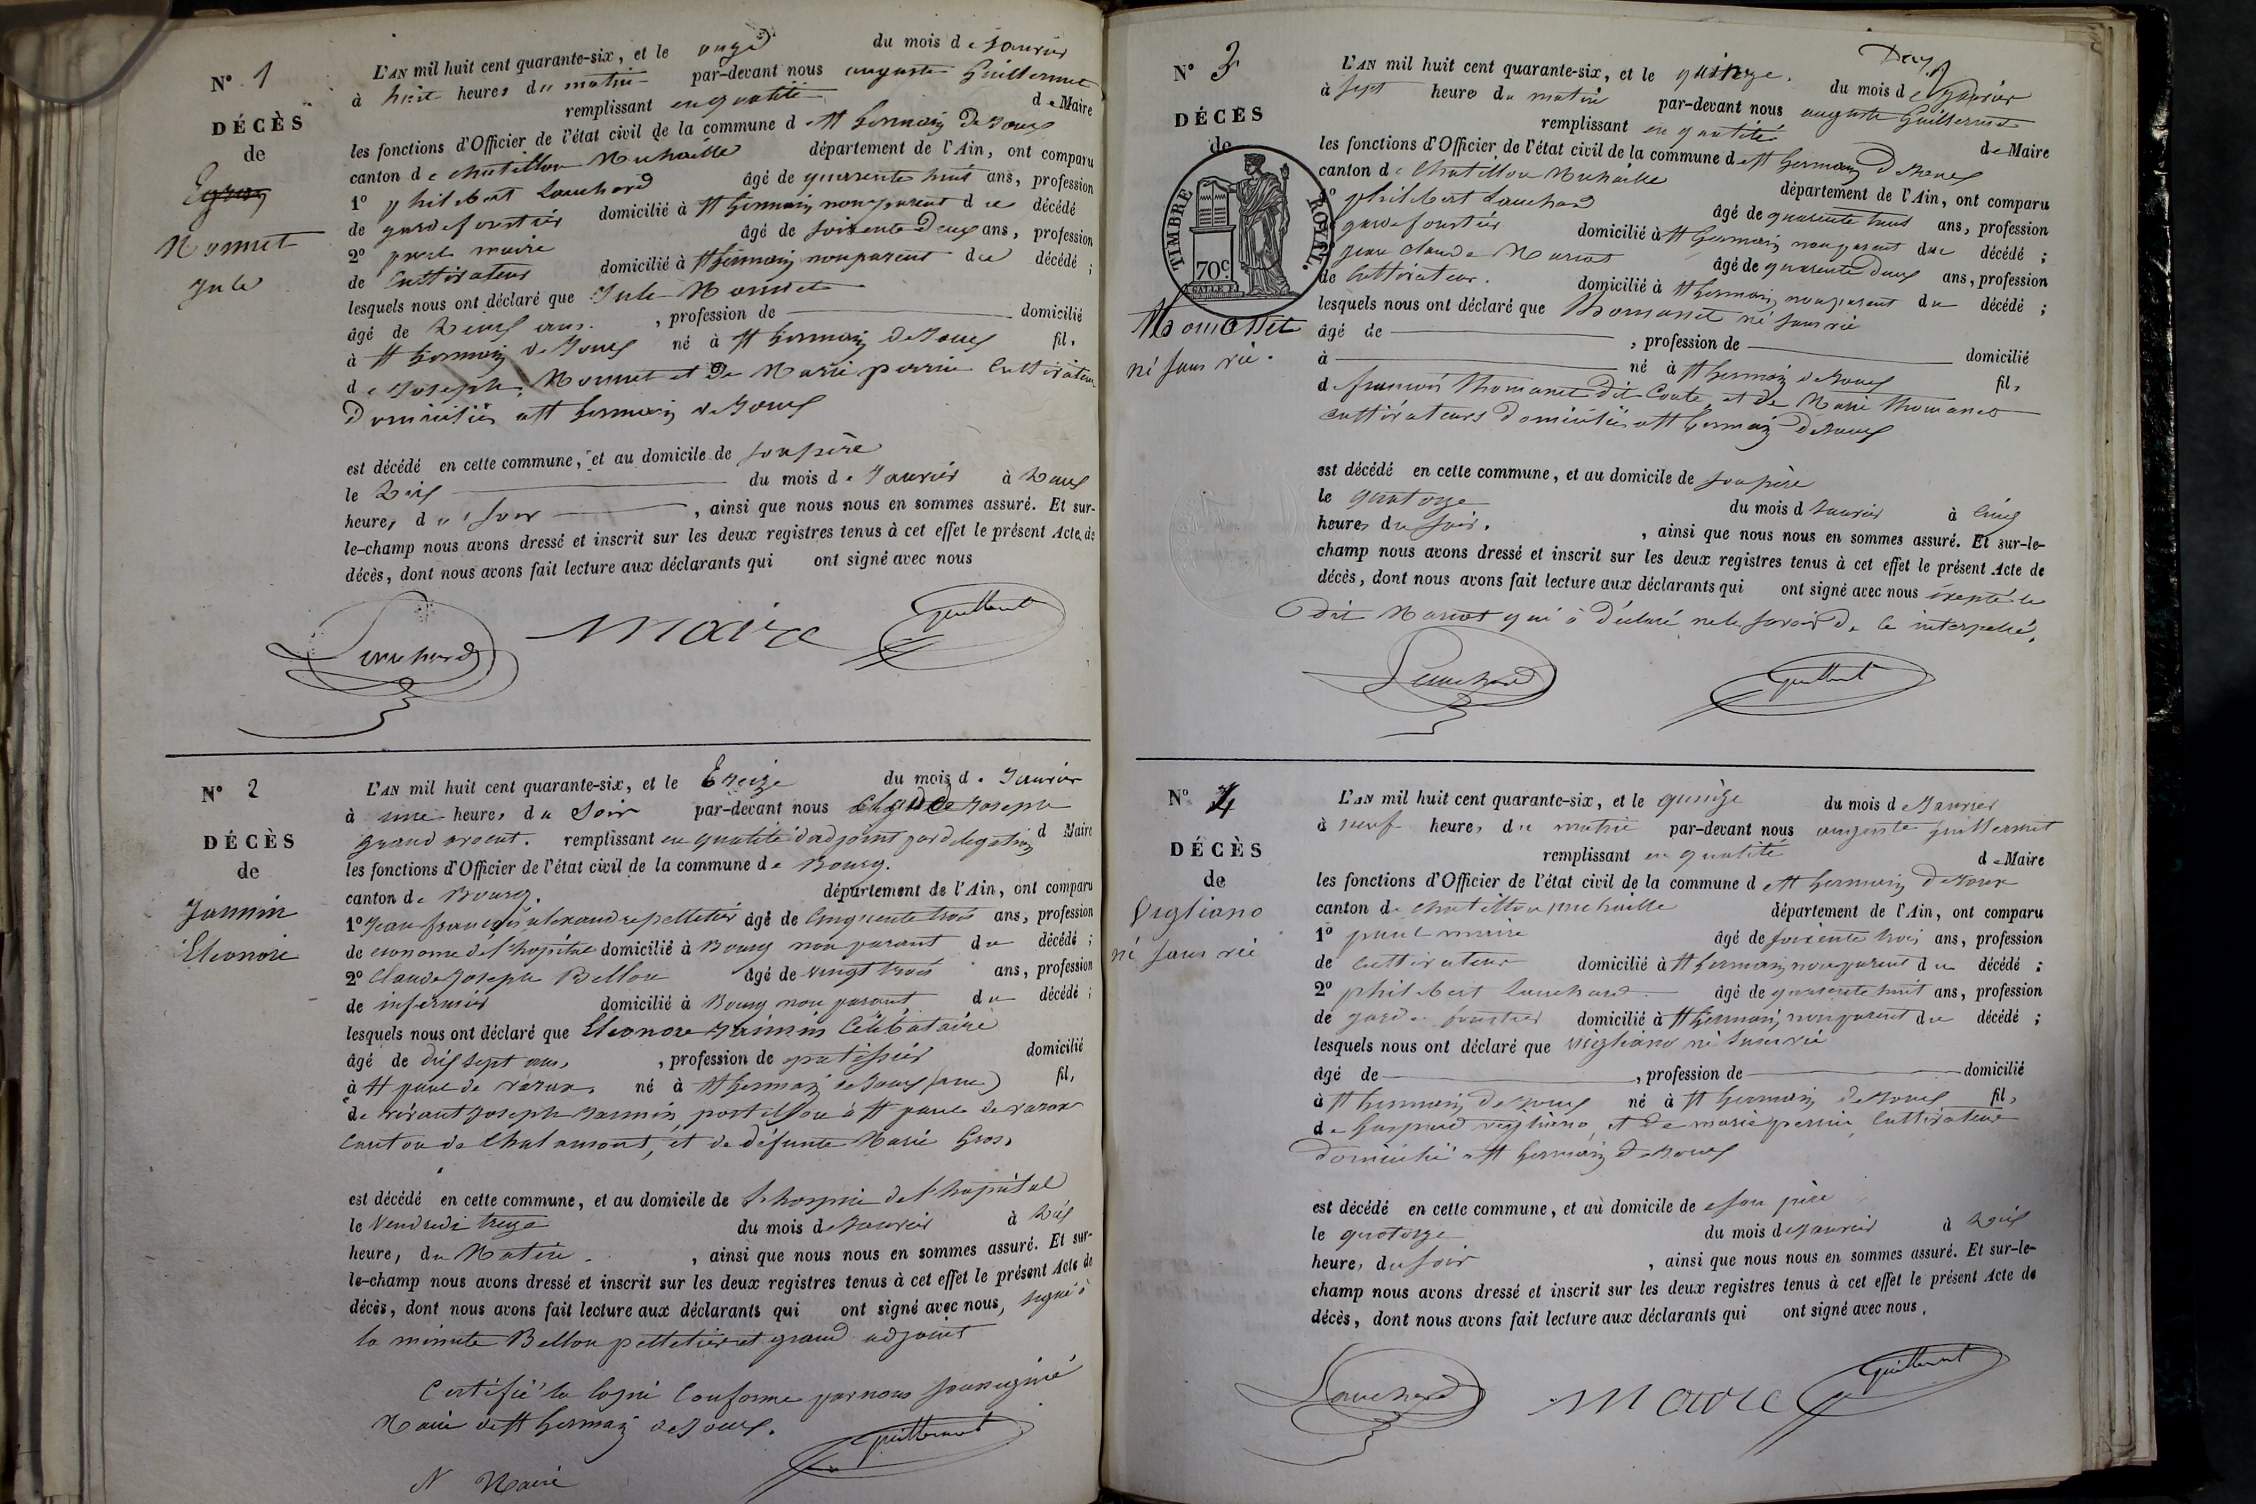 N° 1
DÉCÈS
de
Nonnet
Jule
L'AN mil huit cent quarante-six, et le onze du mois de Janvier
à huit heures du matin par-devant nous auguste Guillermet
remplissant en qualité de Maire
les fonctions d'Officier de l'état civil de la commune d St Germain de Joux
canton de chatillon Michaille département de l'Ain, ont comparu
1° philibert Louchard âgé de quarente huit ans, profession
de garde forestier domicilié à St Germain non parent du décédé
2° paul maire âgé de soixente deux ans, profession
de Cultivateur domicilié à St Germain non parent du décédé ;
lesquels nous ont déclaré que Jule Nonnet
âgé de Deux ans. , profession de domicilié
à St Germain de Joux né à St Germain de Joux fils
de Joseph Nonnet et De Marie perrin Cultivateurs
Domiciliés a St Germain de Joux
est décédé en cette commune, et au domicile de son père
le Dix du mois de Janvier à Deux
heures du soir , ainsi que nous nous en sommes assuré. Et sur-
le-champ nous avons dressé et inscrit sur les deux registres tenus à cet effet le présent Acte de
décès, dont nous avons fait lecture aux déclarants qui ont signé avec nous
Louchard Maire Guillermet
N° 2
DÉCÈS
de
Jannin
Eleonore
L'AN mil huit cent quarante-six, et le Treize du mois de Janvier
à une heures du Soir par-devant nous Claude Joseph
grand remplissant en qualité d'adjoint par delegation d Maire
les fonctions d'Officier de l'état civil de la commune de Bourg.
canton de Bourg. département de l'Ain, ont comparu
1° Jean françois alexandre pelletier âgé de Cinquente trois ans, profession
de econome de l'hopital domicilié à Bourg non parant du décédé ;
2° Claude Joseph Bellon âgé de vingt trois ans, profession
de infirmier domicilié à Bourg non parant du décédé ;
lesquels nous ont déclaré que Eleonore Jannin Célibataire
âgé de dix sept ans, , profession de patissier domicilié
à St paul de varax, né à St Germain de Joux (ain) fils
de vivant Joseph Jannin postillon à St paul de varax
Canton de Chalamont, et de défunte Marie Gros,
est décédé en cette commune, et au domicile de l'hospice de l'hopital
le Vendredi treize du mois de Janvier à Dix
heure, du Matin , ainsi que nous nous en sommes assuré. Et sur-
le-champ nous avons dressé et inscrit sur les deux registres tenus à cet effet le présent Acte de
décès, dont nous avons fait lecture aux déclarants qui ont signé avec nous, signé à
la minute Bellon pelletier et grand adjoint
Certifié la Copie Conforme par nous soussigné
Maire de St Germain de Joux.
Maire Guillermet
N° 3
DÉCÈS
de
TIMBRE ROYAL.
70c
Thomasset
né sans vie.
L'AN mil huit cent quarante-six, et le quinze. du mois de Janvier
à sept heures du matin par-devant nous auguste Guillermet
remplissant en qualité de Maire
les fonctions d'Officier de l'état civil de la commune de St Germain De Joux
canton de Chatillon Michaille département de l'Ain, ont comparu
1° philibert Louchard âgé de quarente huit ans, profession
garde forestier domicilié à St Germain non parent du décédé ;
Jean Claude Mariot âgé de quarente Deux ans, profession
de Cultivateur. domicilié à St Germain non parent du décédé ;
lesquels nous ont déclaré que Thomasset né sans vie
âgé de , profession de domicilié
à né à St Germain de Joux fils
de françois Thomasset dit Coute et de Marie Thomasset
Cultivateurs Domiciliés a St Germain De Joux
est décédé en cette commune, et au domicile de son père
le quatorze du mois d Janvier à Cinq
heures du Soir. , ainsi que nous nous en sommes assuré. Et sur-le-
champ nous avons dressé et inscrit sur les deux registres tenus à cet effet le présent Acte de
décès, dont nous avons fait lecture aux déclarants qui ont signé avec nous éxepté le
Dit Mariot qui à déclaré ne le savoir De Ce interpellé.
Louchard Guillermet
N° 4
DÉCÈS
de
Vigliano
né sans vie
L'AN mil huit cent quarante-six, et le quinze du mois de Janvier
à neuf heures du matin par-devant nous auguste Guillermet
remplissant en qualité de Maire
les fonctions d'Officier de l'état civil de la commune d St Germain De Joux
canton de Chatillon Michaille département de l'Ain, ont comparu
1° paul maire âgé de soixente trois ans, profession
de Cultivateur domicilié à St Germain non parent du décédé ;
2° philibert Louchard âgé de quarente huit ans, profession
de garde forestier domicilié à St Germain non parent du décédé ;
lesquels nous ont déclaré que vigliano né sans vie
âgé de , profession de domicilié
à St Germain de Joux né à St Germain De Joux fils
de Gaspard vigliano et De marie perrin Cultivateur
Domicilié a St Germain De Joux
est décédé en cette commune, et au domicile de son père
le quatorze du mois de Janvier à Dix
heure, du Soir , ainsi que nous nous en sommes assuré. Et sur-le-
champ nous avons dressé et inscrit sur les deux registres tenus à cet effet le présent Acte de
décès, dont nous avons fait lecture aux déclarants qui ont signé avec nous.
Louchard Maire Guillermet